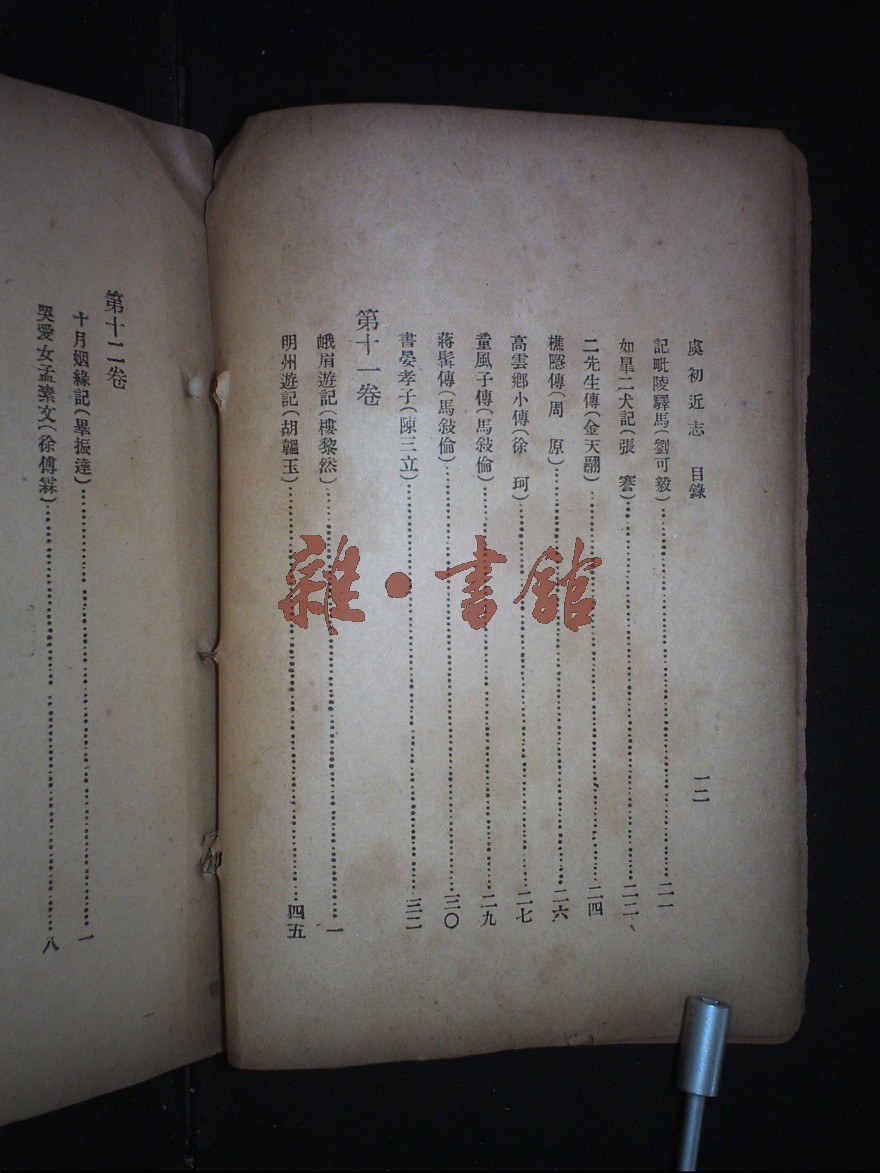 虞初近志　目錄
一二
記毗陵驛馬(劉可毅)……二一
如臯二犬記(張　謇)……二二
二先生傳(金天翮)……二四
樵隱傳(周　原)……二六
高雲鄉小傳(徐　珂)……二七
童風子傳(馬敍倫)……二九
蔣髯傳(馬敍倫)……三〇
書晏孝子(陳三立)……三二
第十一卷
峨眉遊記(樓黎然)……一
明州遊記(胡韞玉)……四五
第十二卷
十月姻緣記(畢振達)……一
哭愛女孟素文(徐傅霖)……八
雜·書館